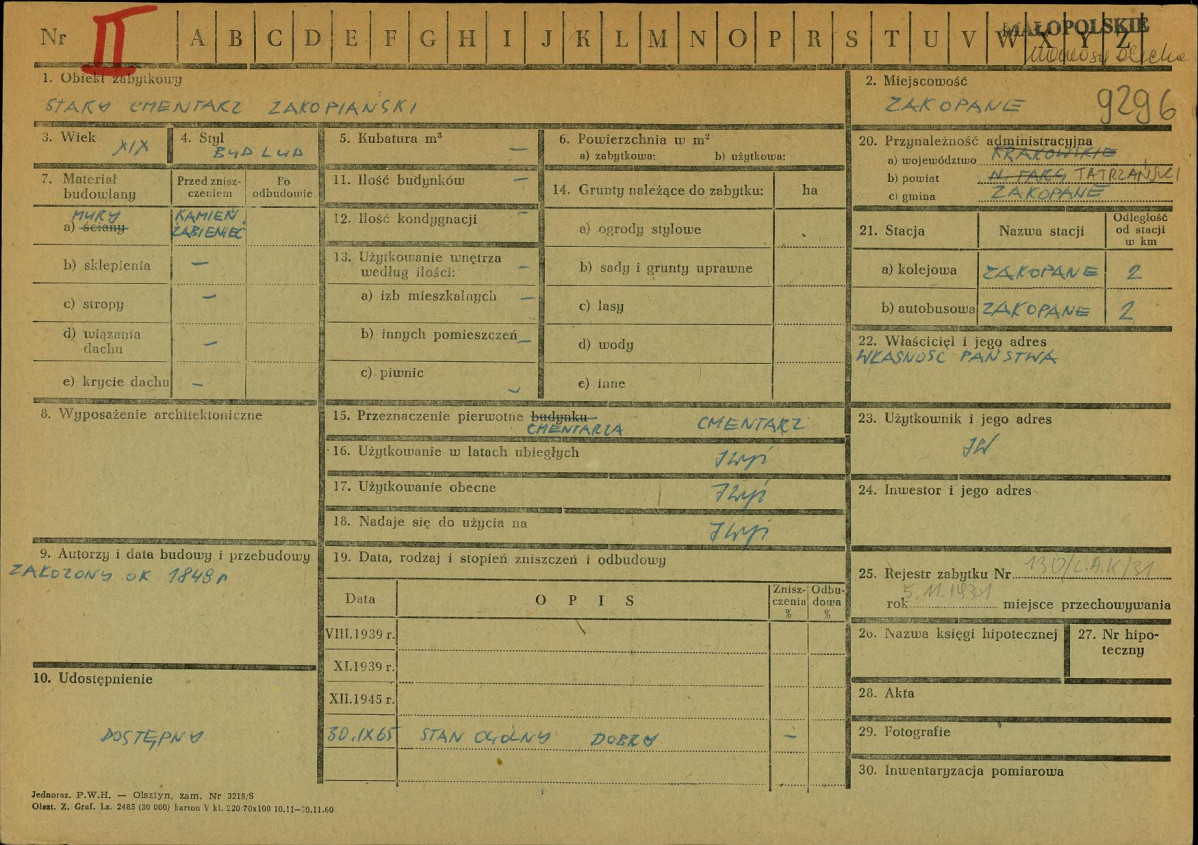 Nr II A B C D E F G H I J K L M N O P R S T U V W X Y Z
MAŁOPOLSKIE
1. Obiekt zabytkowy
STARY CMENTARZ ZAKOPIAŃSKI
2. Miejscowość
ZAKOPANE 9296
3. Wiek XIX
4. Styl
BUD LUD
5. Kubatura m³ —
6. Powierzchnia w m²
a) zabytkowa: b) użytkowa:
7. Materiał budowlany
Przed zniszczeniem
Po odbudowie
MURY
a) ściany
KAMIEŃ
ŁABIENIEC
b) sklepienia —
c) stropy —
d) wiązania dachu —
e) krycie dachu —
8. Wyposażenie architektoniczne
9. Autorzy i data budowy i przebudowy
ZAŁOŻONY OK 1848 r
10. Udostępnienie
DOSTĘPNY
11. Ilość budynków —
12. Ilość kondygnacji —
13. Użytkowanie wnętrza według ilości: —
a) izb mieszkalnych —
b) innych pomieszczeń —
c) piwnic —
14. Grunty należące do zabytku: ha
a) ogrody stylowe
b) sady i grunty uprawne
c) lasy
d) wody
e) inne
15. Przeznaczenie pierwotne budynku
CMENTARZA CMENTARZ
16. Użytkowanie w latach ubiegłych
17. Użytkowanie obecne
18. Nadaje się do użycia na
19. Data, rodzaj i stopień zniszczeń i odbudowy
Data OPIS Zniszczenia % Odbudowa %
VIII.1939 r.
XI.1939 r.
XII.1945 r.
30.IX65 STAN OGÓLNY DOBRY —
20. Przynależność administracyjna
a) województwo KRAKOWSKIE
b) powiat N. TARG TATRZAŃSKI
c) gmina ZAKOPANE
21. Stacja Nazwa stacji Odległość od stacji w km
a) kolejowa ZAKOPANE 2
b) autobusowa ZAKOPANE 2
22. Właściciel i jego adres
WŁASNOŚĆ PAŃSTWA
23. Użytkownik i jego adres
JW
24. Inwestor i jego adres
25. Rejestr zabytku Nr 130/L.A.K/31
rok 5.11.1931 miejsce przechowywania
26. Nazwa księgi hipotecznej
27. Nr hipoteczny
28. Akta
29. Fotografie
30. Inwentaryzacja pomiarowa
Jednoraz. P.W.H. — Olsztyn, zam. Nr 3215/S
Olszt. Z. Graf. Lz. 2485 (30 000) karton V kl. 220 70x100 10.11—30.11.60